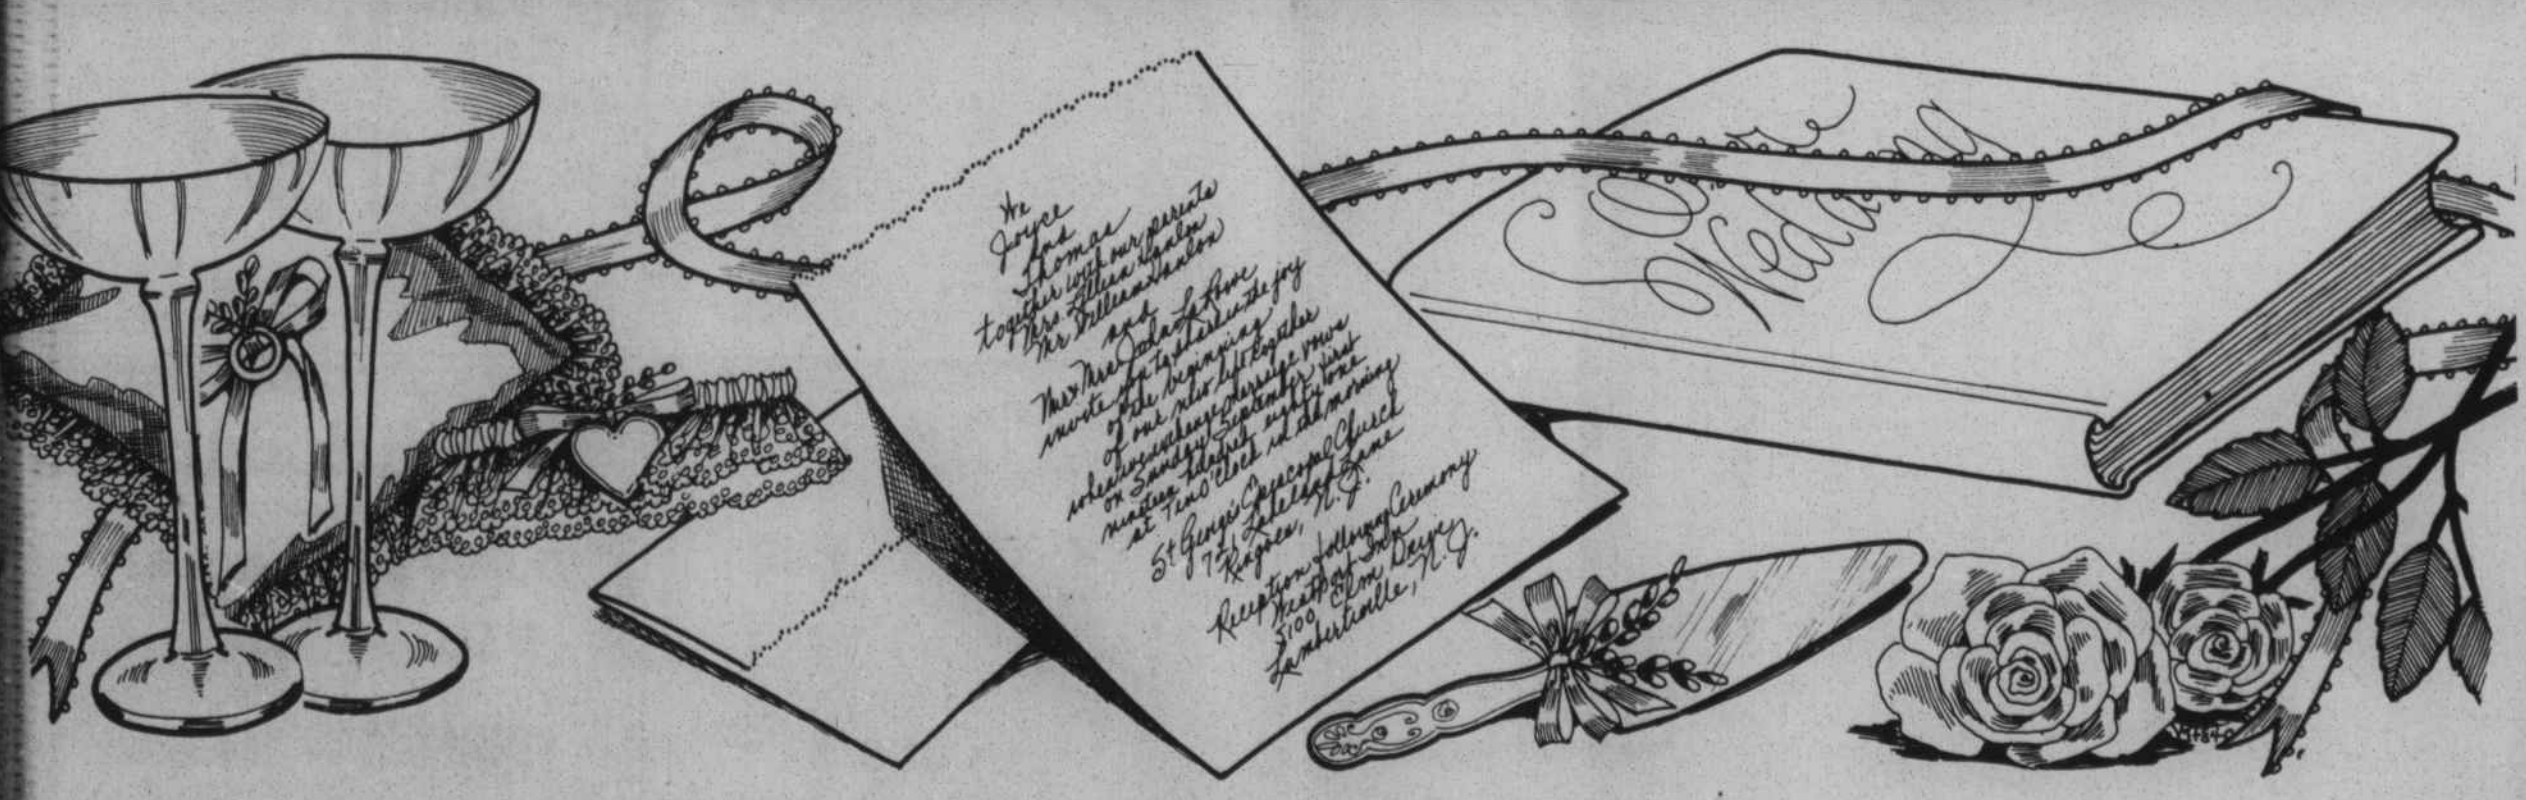 We
Joyce
and
Thomas
together with our parents
Mrs Lillian Hanlon
Mr William Hanlon
and
Mr & Mrs John La Rowe
invite you to share in the joy
of the beginning
of our new life together
when we exchange marriage vows
on Sunday September first
nineteen hundred eighty one
at Ten O'Clock in the morning
St George's Episcopal Church
721 Lakeland Lane
Ringoes, N.J.
Reception following Ceremony
Westport Inn
5100 Elm Drive
Lambertville, N.J.
Our
Wedding